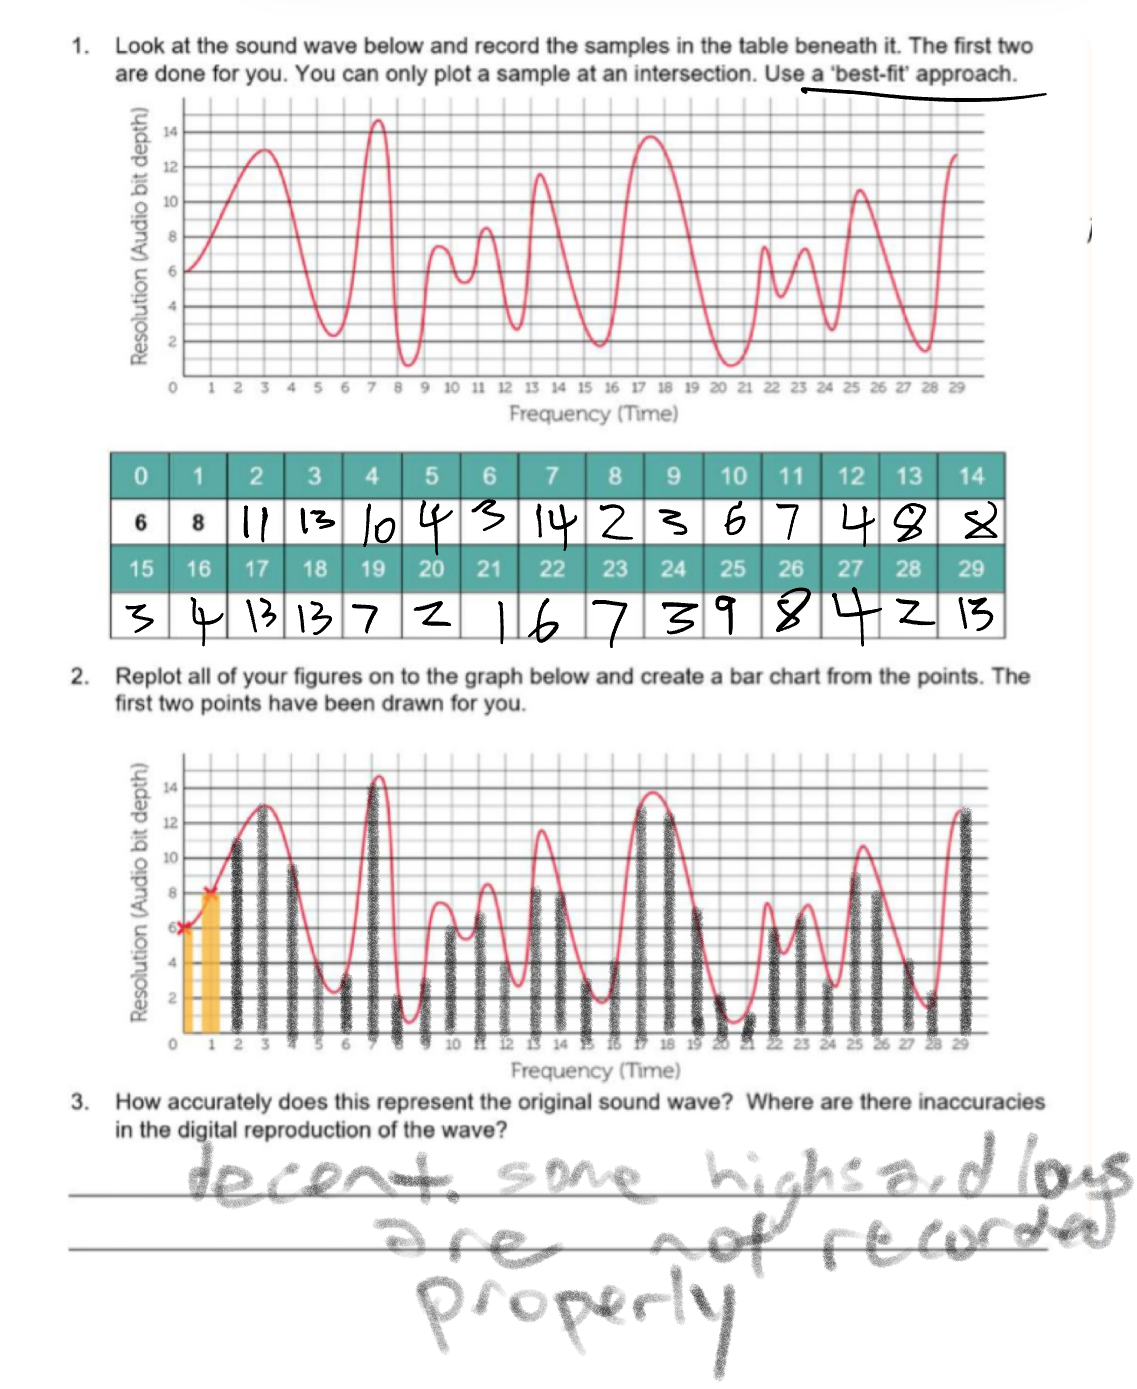 1. Look at the sound wave below and record the samples in the table beneath it. The first two
are done for you. You can only plot a sample at an intersection. Use a 'best-fit' approach.
Resolution (Audio bit depth)
14
12
10
8
6
4
2
0 1 2 3 4 5 6 7 8 9 10 11 12 13 14 15 16 17 18 19 20 21 22 23 24 25 26 27 28 29
Frequency (Time)
0 1 2 3 4 5 6 7 8 9 10 11 12 13 14
6 8 11 13 10 4 3 14 2 3 6 7 4 8 8
15 16 17 18 19 20 21 22 23 24 25 26 27 28 29
3 4 13 13 7 2 1 6 7 3 9 8 4 2 13
2. Replot all of your figures on to the graph below and create a bar chart from the points. The
first two points have been drawn for you.
Resolution (Audio bit depth)
14
12
10
8
6
4
2
0 1 2 3 4 5 6 7 8 9 10 11 12 13 14 15 16 17 18 19 20 21 22 23 24 25 26 27 28 29
Frequency (Time)
3. How accurately does this represent the original sound wave? Where are there inaccuracies
in the digital reproduction of the wave?
decent. some highs and lows
are not recorded
properly